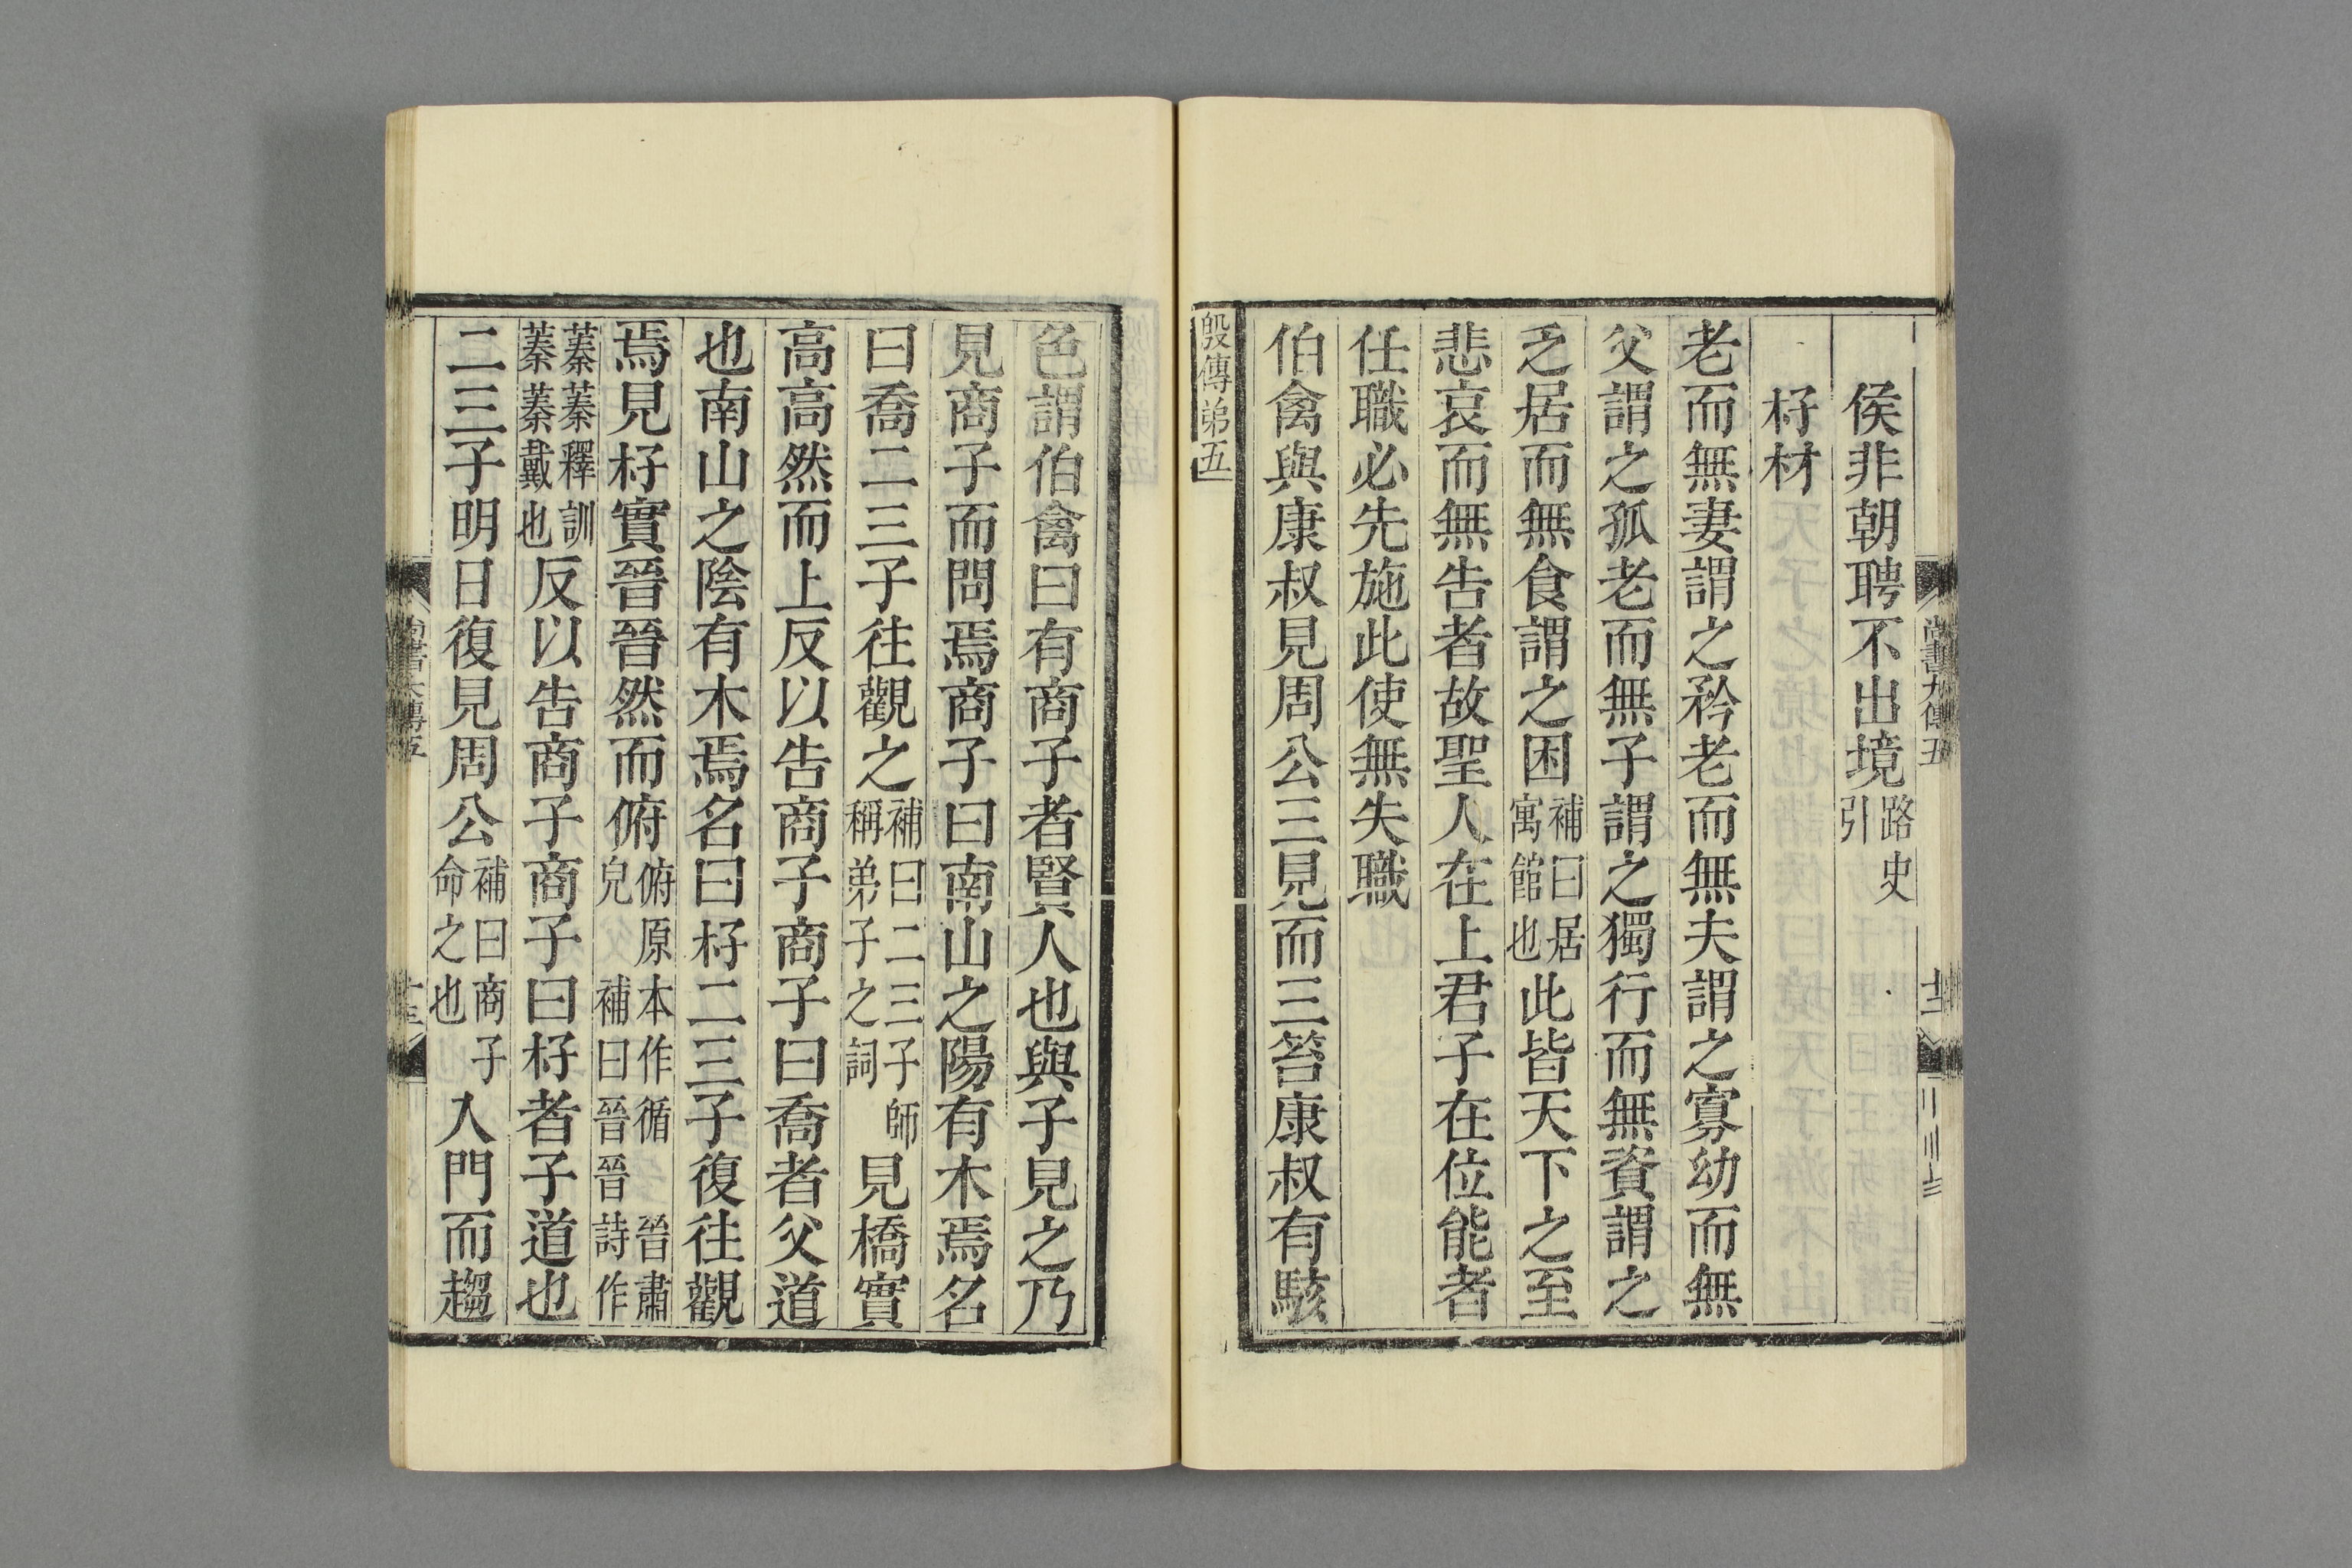 尚書大傳五
十二
侯非朝聘不出境路史引
杍材
老而無妻謂之矜老而無夫謂之寡幼而無
父謂之孤老而無子謂之獨行而無資謂之
乏居而無食謂之困補曰居寓館也此皆天下之至
悲哀而無告者故聖人在上君子在位能者
任職必先施此使無失職
伯禽與康叔見周公三見而三笞康叔有駭
殷傳弟五
色謂伯禽曰有商子者賢人也與子見之乃
見商子而問焉商子曰南山之陽有木焉名
曰喬二三子往觀之補曰二三子師稱弟子之詞見橋實
高高然而上反以告商子商子曰喬者父道
也南山之陰有木焉名曰杍二三子復往觀
焉見杍實晉晉然而俯俯原本作循 晉肅皃 補曰晉晉詩作
蓁蓁釋訓蓁蓁戴也反以告商子商子曰杍者子道也
二三子明日復見周公補曰商子命之也入門而趨
尚書大傳五